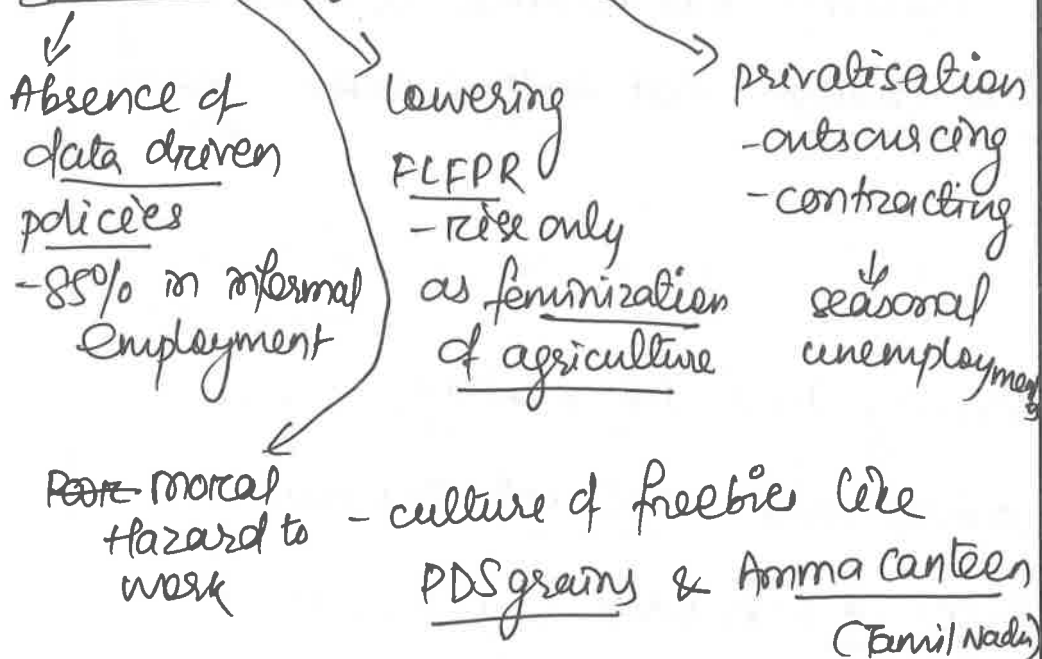 Absence of
data driven
policies
-85% in informal
employment
lowering
FLFPR
- rise only
as feminization
of agriculture
privatisation
-outsourcing
-contracting
↓
seasonal
unemployment
Poor moral
Hazard to
work
- culture of freebies like
PDS grains & Amma Canteen
(Tamil Nadu)